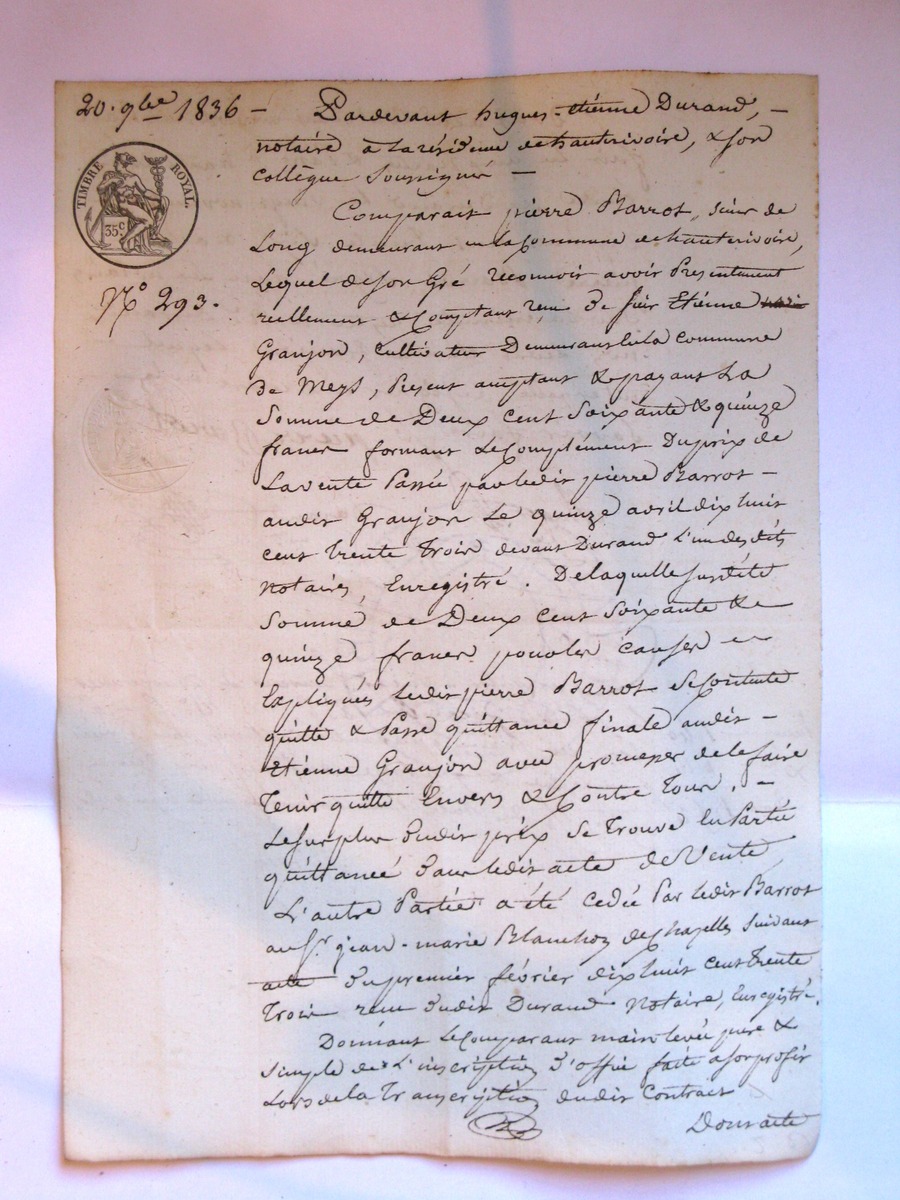 20. 9bre 1836 –
Pardevant hugues-étiénne Durand, –
notaire à la résidence de hauterivoire, & son
collègue Soussignés –
TIMBRE ROYAL.
35c
Comparait pierre Barrot, sieur de
Long demeurant en la Commune de hauterivoire,
Lequel de son Gré reconnoit avoir Présentement
réellement & Comptant reçu de sieur Etiénne
N° 293.
Granjon, Cultivateur Demeurant en la commune
De Meys, Présent acceptant & payant La
Somme de Deux cent soixánte & quinze
francs formant Le Complément Du prix de
La vente Passée par ledit pierre Barrot –
audit Granjon Le quinze avril dix huit
cent trente trois devant Durand L'un des dits
Notaires, Enregistré. De laquelle susdite
Somme de Deux cent soixante &
quinze francs pour les causes
Expliquées ledit pierre Barrot se Contente
quitte & Passe quittance finale audit –
Etiénne Granjon avec promesses de le faire
Tenir quitte Envers & Contre Tous. –
Le surplus dudit prix se trouve en Partie
quittancé dans ledit acte de Vente
L'autre Partie a été cedée Par ledit Barrot
au Sr. jean-marie Blanchon de Chazelles suivant
acte du premier février dix huit cent trente
Trois reçu dudit Durand Notaire, Enregistré.
Donnant Le Comparant main levée pure &
simple de L'inscription d'office faite a son profit
Lors de la Transcription dudit Contract
Dont acte